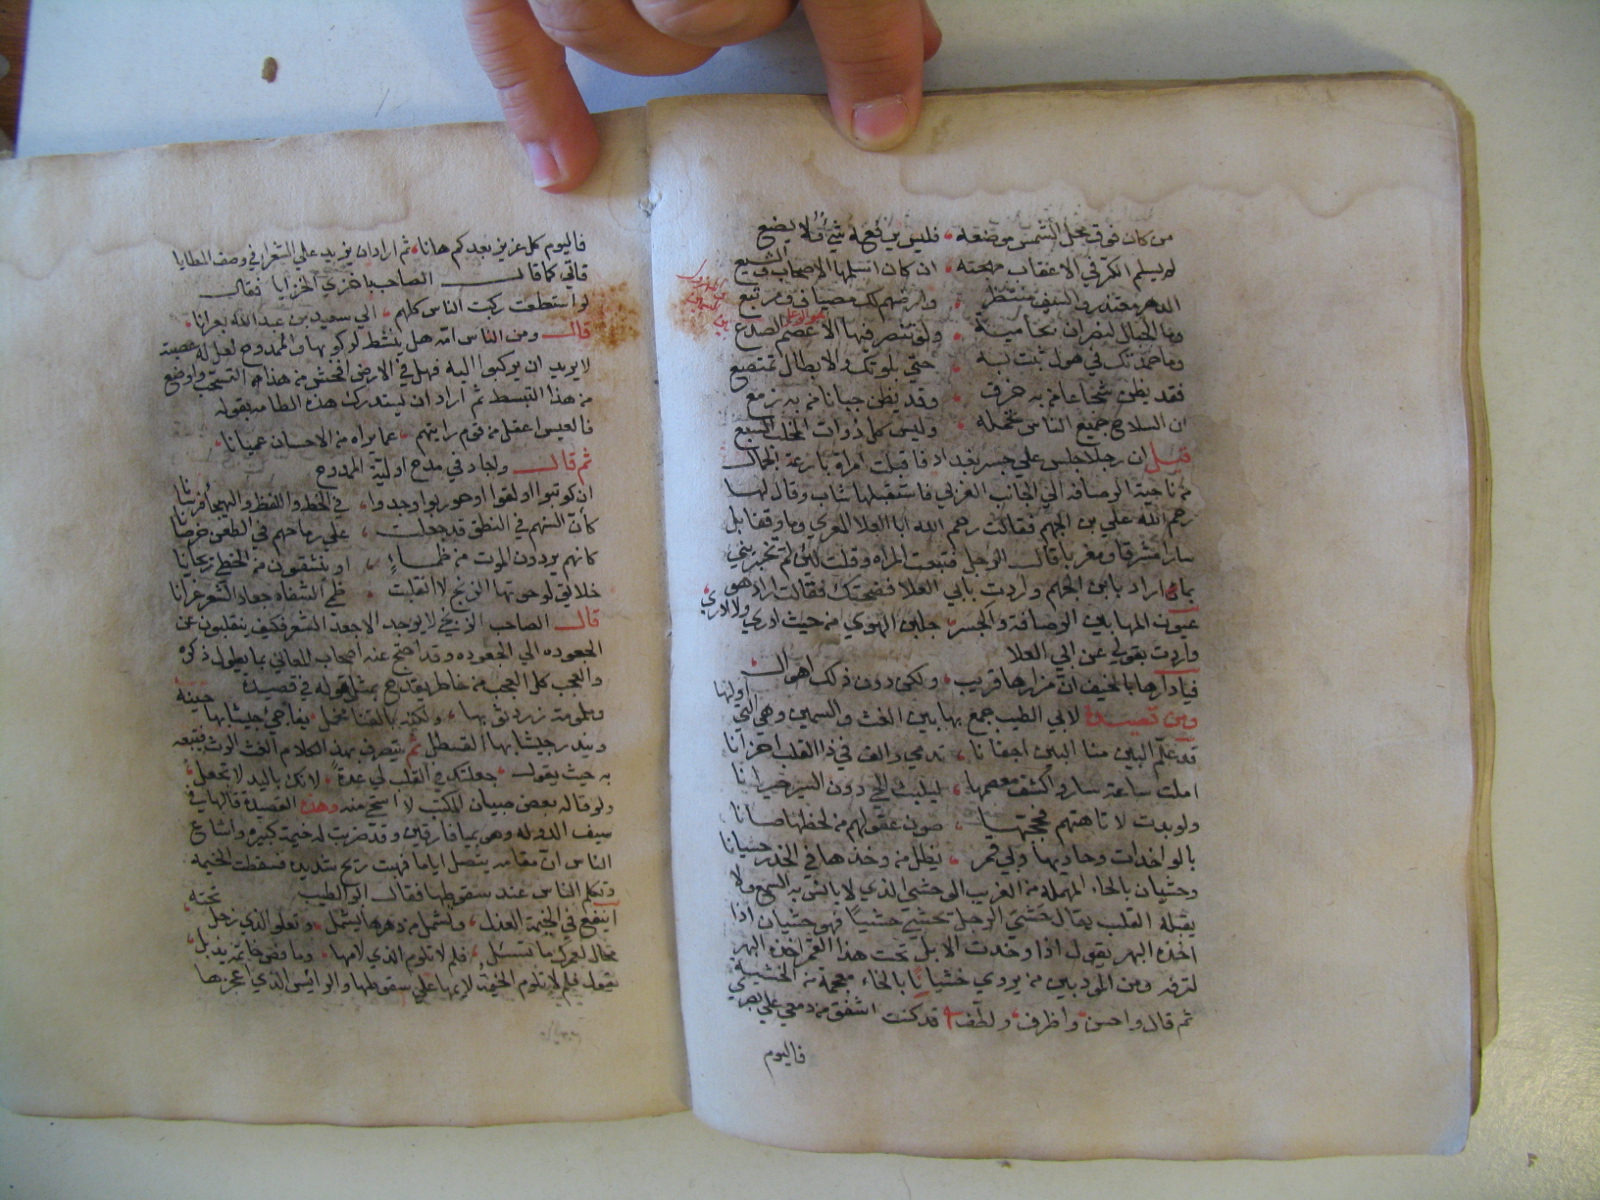 من كان فوق محل الشمس موضعه فليس يرفعه شيء ولا يضع
لم يسلم الكر في الاعقاب مهجته ان كان اسلمها الاصحاب والشيع
الدهر معتذر والسيف منتظر وارضهم لك مصطاف ومرتبع
وما الجبال لنصران بحامية ولو تنصر فيها الاعصم الصدع
وما حمدتك في هول ثبت له حتى بلوتك والابطال تمتصع
فقد يظن شجاعا من به خرق وقد يظن جبانا من به زمع
ان السلاح جميع الناس تحمله وليس كل ذوات المخلب السبع
قيل ان رجلا جلس علي جسر بغداد فاقبلت امراة بارعة الجمال
من ناحية الرصافه الي الجانب الغربي فاستقبلها شاب وقال لها
رحم الله علي بن الجهم فقالت رحم الله ابا العلا المعري وما وقفا بل
سارا مشرقا ومغربا قال الرجل فتبعت المراه وقلت لئن لم تخبريني
بما اراد بابن الجهم واردت بابي العلا فضحتك فقالت اراد هو
عيون المها بين الرصافة والجسر جلبن الهوي من حيث ادري ولا ادري
واردت بقولي عن ابي العلا
فيا دارها بالخيف ان مزارها قريب ولكن دون ذلك اهوال
ومن قصيدة لابي الطيب جمع بها بين الغث والسمين وهي التي اولها
قد علم البين منا البين اجفانا تدمي والف في ذا القلب احزانا
املت ساعة ساروا كشف معصمها ليلبث الحي دون السير حيرانا
ولو بدت لاتاهتهم فحجبها صون عقولهم من لحظها صانا
بالواخدات وحاديها وبي قمر يظل من وخدها في الخدر حشيانا
وحشيان بالحاء المهملة من الغريب الوحشي الذي لا يانس به السمع ولا
يقبله القلب يقال حشي الرجل يحشي حشيا فهو حشيان اذا
اخذه البهر يقول اذا وخدت الابل تحت هذا القمر اخذه البهر
لترفه ومن المودبين من يروي خشيانا بالخاء معجمة من الخشية
ثم قال واحسن واظرف ولطف قد كنت اشفق من دمعي علي بصري
فاليوم
فاليوم كل عزيز بعدكم هانا ثم اراد ان يزيد علي الشعرا في وصف المطايا
فاتي كما قال الصاحب باخزي الخزايا فقال
لو استطعت ركبت الناس كلهم الي سعيد بن عبد الله بعرانا
قال ومن الناس امه هل ينشط لركوبها والممدوح لعل له عصبة
لا يريد ان يركبوا اليه فهل في الارض افحش من هذا التسحب واوضع
من هذا التبسط ثم اراد ان يستدرك هذه الطامه بقوله
فالعيس اعقل من قوم رايتهم عما يراه من الاحسان عميانا
ثم قال ولجاد في مدح اولية الممدوح
ان كوتبوا او لقوا او حوربوا وجدوا في الخط واللفظ والهيجا فرسانا
كان السنهم في النطق قد جعلت علي رماحهم في الطعن خرصانا
كانهم يردون الموت من ظماء او ينشقون من الخطي ريحانا
خلائق لو حوتها الزنج لانقلبت ظمي الشفاه جعاد الشعر غرانا
قال الصاحب الزنجي لا يوجد الا جعد الشعر فكيف ينقلبون عن
الجعوده الي الجعوده وقد احتج عنه اصحاب المعاني بما يطول ذكره
والعجب كل العجب من خاطر يقدح بمثل قوله في قصيدة
وملمومة زرد ثوبها ولكنه بالقنا مخمل يفاجي جيشا بها حينه
وينذر جيشا بها القسطل ثم يتصرف بهذا الكلام الغث الرث فيتبعه
به حيث يقول جعلتك في القلب لي عدة لانك باليد لا تجعل
ولو قاله بعض صبيان المكتب لاستحي منه وهذه القصيدة قالها في
سيف الدوله وهي بميا فارقين وقد ضربت له خيمة كبيره واشاع
الناس ان مقامه يتصل اياما فهبت ريح شديدة فسقطت الخيمة
وتكلم الناس عند سقوطها فقال ابو الطيب
اينفع في الخيمة العذل وتشمل من دهرها يشمل وتعلو الذي زحل تحته
محال لعمرك ما تسئل فلم لا تلوم الذي لامها وما فص خاتمه يذبل
يقول فلم لا تلوم الخيمة لايمها علي سقوطها والرائيس الذي اعجزها